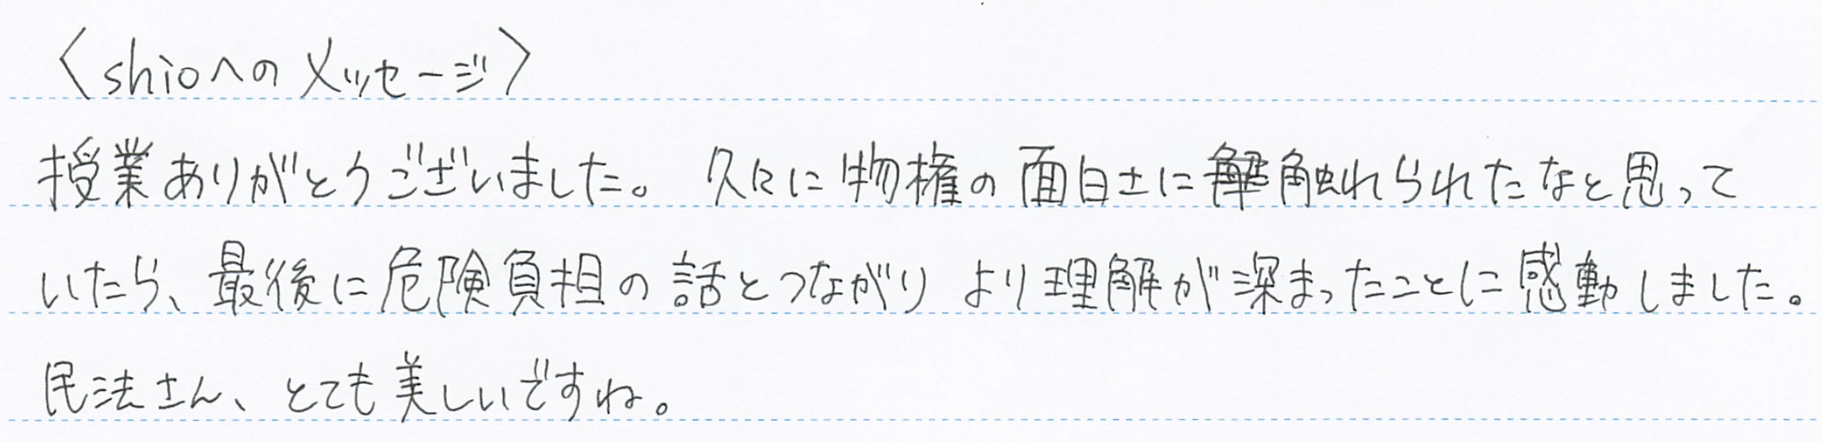 〈shioへのメッセージ〉
授業ありがとうございました。久々に物権の面白さに触れられたなと思って
いたら、最後に危険負担の話とつながりより理解が深まったことに感動しました。
民法さん、とても美しいですね。